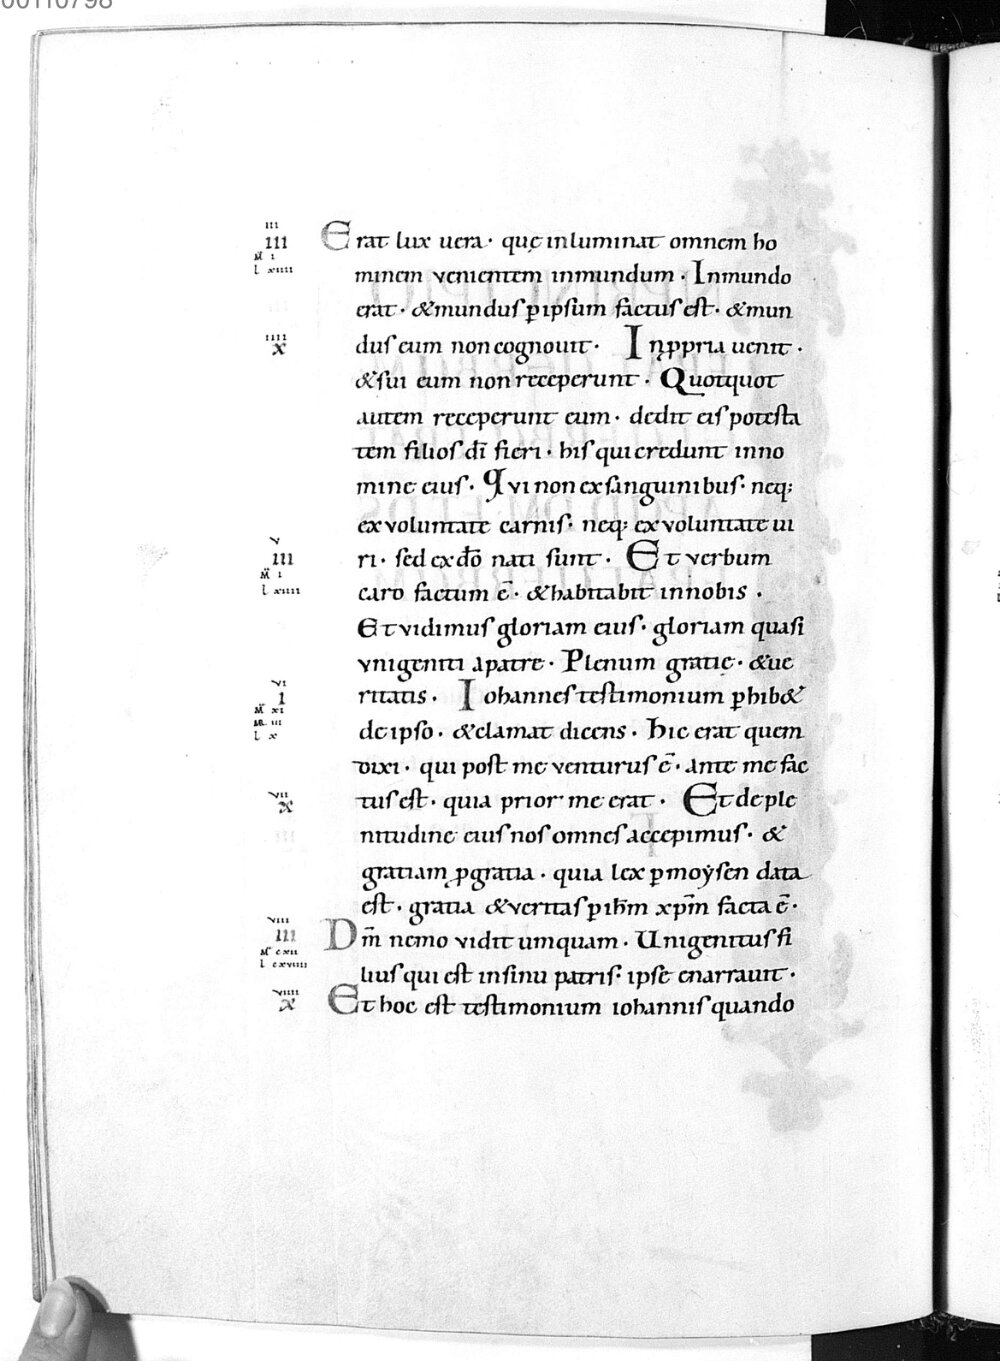 00110798
iii
iii
M i
L xiiii
Erat lux uera· quę inluminat omnem ho
minem venientem inmundum· Inmundo
erat· &mundus ꝑipsum factus est· &mun
iiii
x
dus eum non cognouit· Inꝓpria uenit·
&sui eum non receperunt· Quotquot
autem receperunt eum· dedit eis potesta
tem filios dī fieri· his qui credunt inno
mine eius· Qvi non ex sanguinibus· neq;
ex voluntate carnis· neq; ex voluntate ui
v
iii
M i
L xiiii
ri· sed ex dō nati sunt· Et verbum
caro factum ē· &habitabit innobis·
Et vidimus gloriam eius· gloriam quasi
vnigeniti apatre· Plenum gratię· &ue
vi
i
M xi
MR iii
L x
ritatis· Iohannes testimonium ꝑhib&
de ipso· &clamat dicens· hic erat quem
dixi· qui post me venturus ē· ante me fac
vii
x
tus est· quia prior me erat· Et de ple
nitudine eius nos omnes accepimus· &
gratiam ꝓgratia· quia lex ꝑmoẏsen data
est· gratia &veritas ꝑihm̄ xpm̄ facta ē·
viii
iii
M cxii
L cxviiii
Dm̄ nemo vidit umquam· Unigenitus fi
lius qui est insinu patris· ipse enarrauit·
viiii
x
Et hoc est testimonium iohannis quando